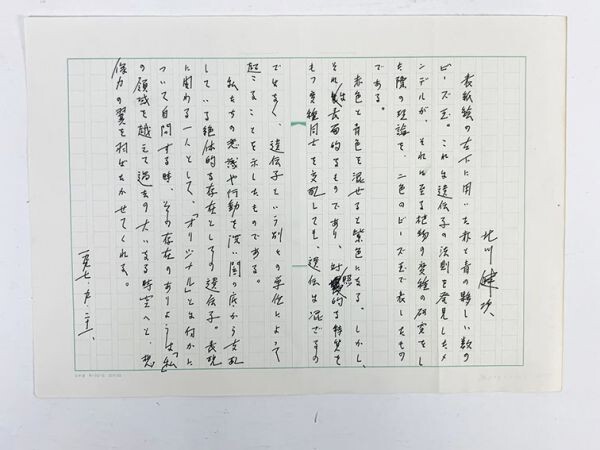 北川健次
表紙絵の左下に用いた赤と青の夥しい数の
ビーズ玉。これは遺伝子の法則を発見したメ
ンデルが、それに至る植物の変種の研究をし
た際の理論を、二色のビーズ玉で表したもの
である。
赤色と青色を混ぜると紫色になる。しかし、
それは表面的なものであり、対照的な特質を
もつ変種同士を交配しても、遺伝は混ざるの
ではなく、遺伝子という別々の単位によって
起こることを示したものである。
私たちの思惑や行動を深い闇の底から支配
している絶体的な存在としての遺伝子。表現
に関わる一人として、「オリジナル」とは何かに
ついて自問する時、その存在のありようは「私」
の領域を越えて過去の大いなる時空へと、想
像力の翼を羽ばたかせてくれる。